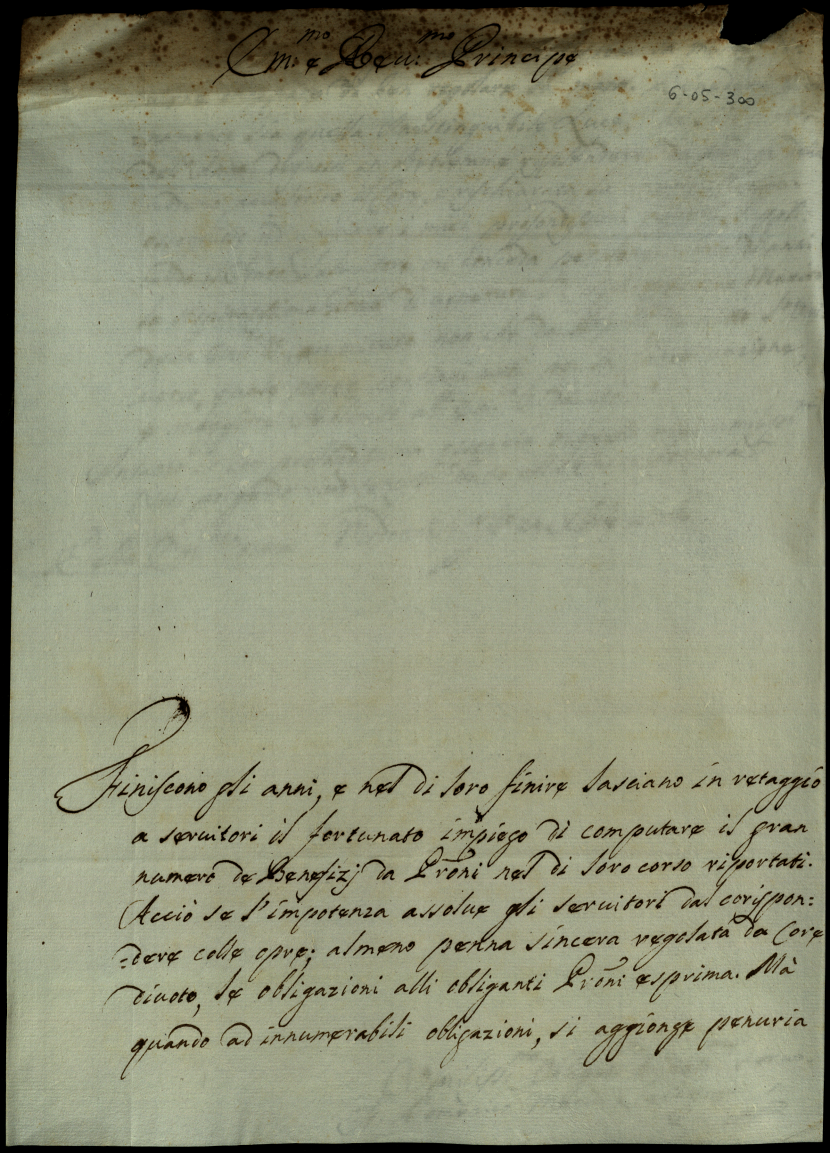 Emo e Reu:mo Principe
6-05-300
Finiscono gli anni, e nel di loro finire lasciano in retaggio
a seruitori il fortunato impiego di computare il gran
numero de Benefizj da Proni nel di loro corso riportati.
Acciò se l'impotenza assolue gli seruitori dal corispon:
:dere colle opre; almeno penna sincera regolata da Core
diuoto, le obligazioni alli obliganti Proni esprima. Mà
quando ad innumerabili obligazioni, si aggionge penuria